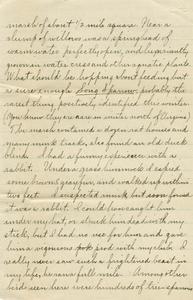 marsh of about ½ mile square. Near a
clump of willows was a spring head of
warm water perfectly open, and luxuriantly
grown in water cress and other aquatic plants.
What should be hopping about feeding but
a sure enough Song Sparrow, probably the
rarest thing positively identified this winter
(You know they are rare in winter north of Virginia)
The marsh contained a dozen rat houses and
many mink tracks, also found an old duck
blind. I had a funny experience with a
rabbit. Under a grass hummock I espied
some brown fur playing and walked up within
two feet. I suspected mink but soon found
it was a rabbit. I could have caught him
under my hat, or struck him dead with my
stick, but I had no use for him and gave
him a vigorous poke with my club. I
really never saw such a frightened beast in
my life, he ran a full mile. Among other
birds seen were hundreds of tree sparrows